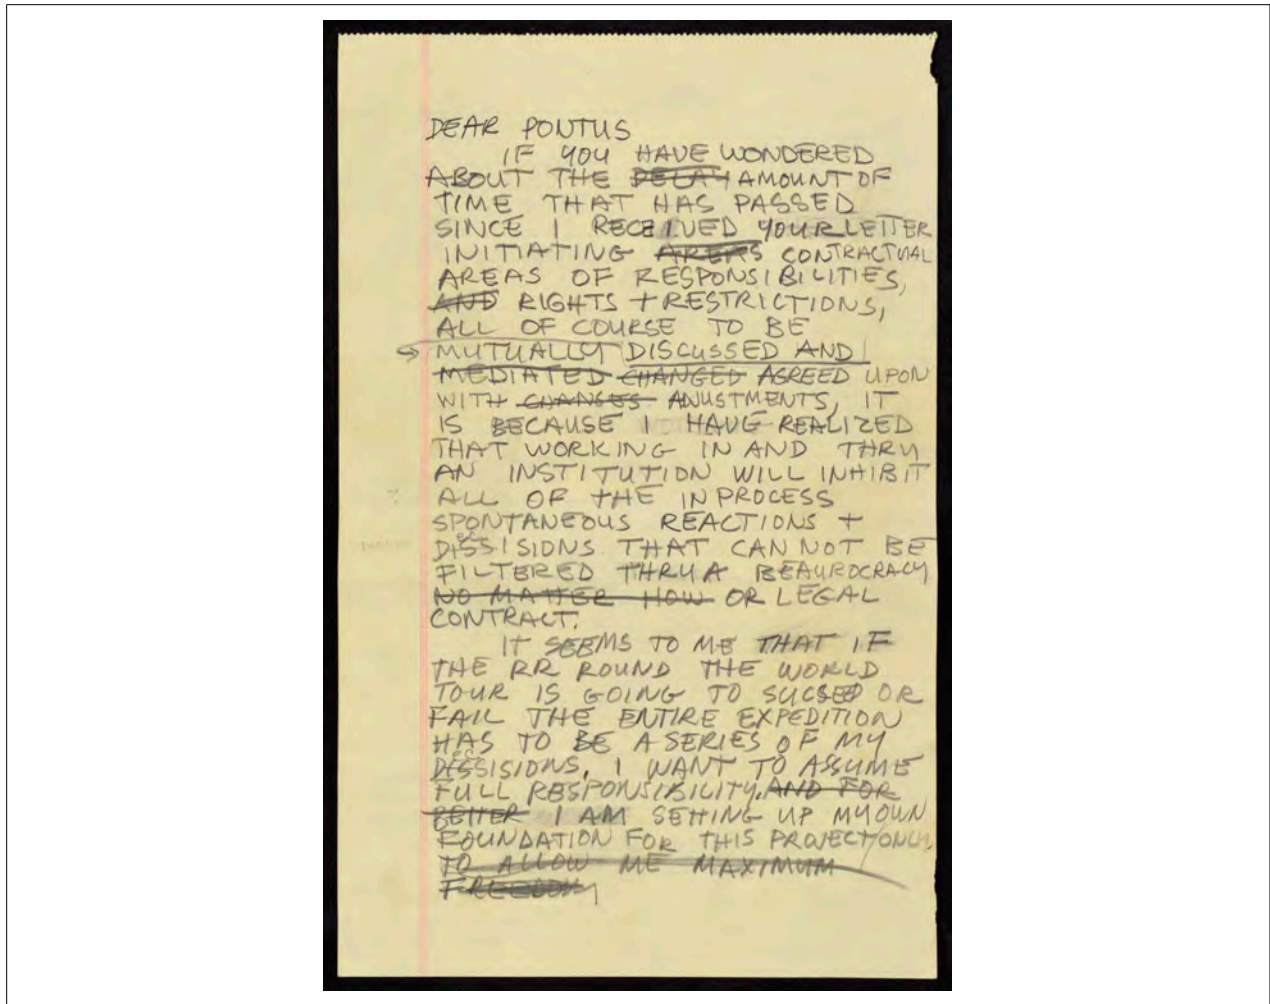 DEAR PONTUS
IF YOU HAVE WONDERED
ABOUT THE DELAY AMOUNT OF
TIME THAT HAS PASSED
SINCE I RECEIVED YOUR LETTER
INITIATING AREAS CONTRACTUAL
AREAS OF RESPONSIBILITIES,
AND RIGHTS + RESTRICTIONS,
ALL OF COURSE TO BE
MUTUALLY DISCUSSED AND
MEDIATED CHANGED AGREED UPON
WITH CHANGES ADJUSTMENTS, IT
IS BECAUSE I HAVE REALIZED
THAT WORKING IN AND THRU
AN INSTITUTION WILL INHIBIT
ALL OF THE IN PROCESS
SPONTANEOUS REACTIONS +
DISSISIONS THAT CAN NOT BE
FILTERED THRU A BEAUROCRACY
NO MATTER HOW OR LEGAL
CONTRACT.
IT SEEMS TO ME THAT IF
THE RR ROUND THE WORLD
TOUR IS GOING TO SUCSEED OR
FAIL THE ENTIRE EXPEDITION
HAS TO BE A SERIES OF MY
DISSISIONS. I WANT TO ASSUME
FULL RESPONSIBILITY. AND FOR
BETTER I AM SETTING UP MY OWN
FOUNDATION FOR THIS PROJECT ONLY.
TO ALLOW ME MAXIMUM
FREEDOM